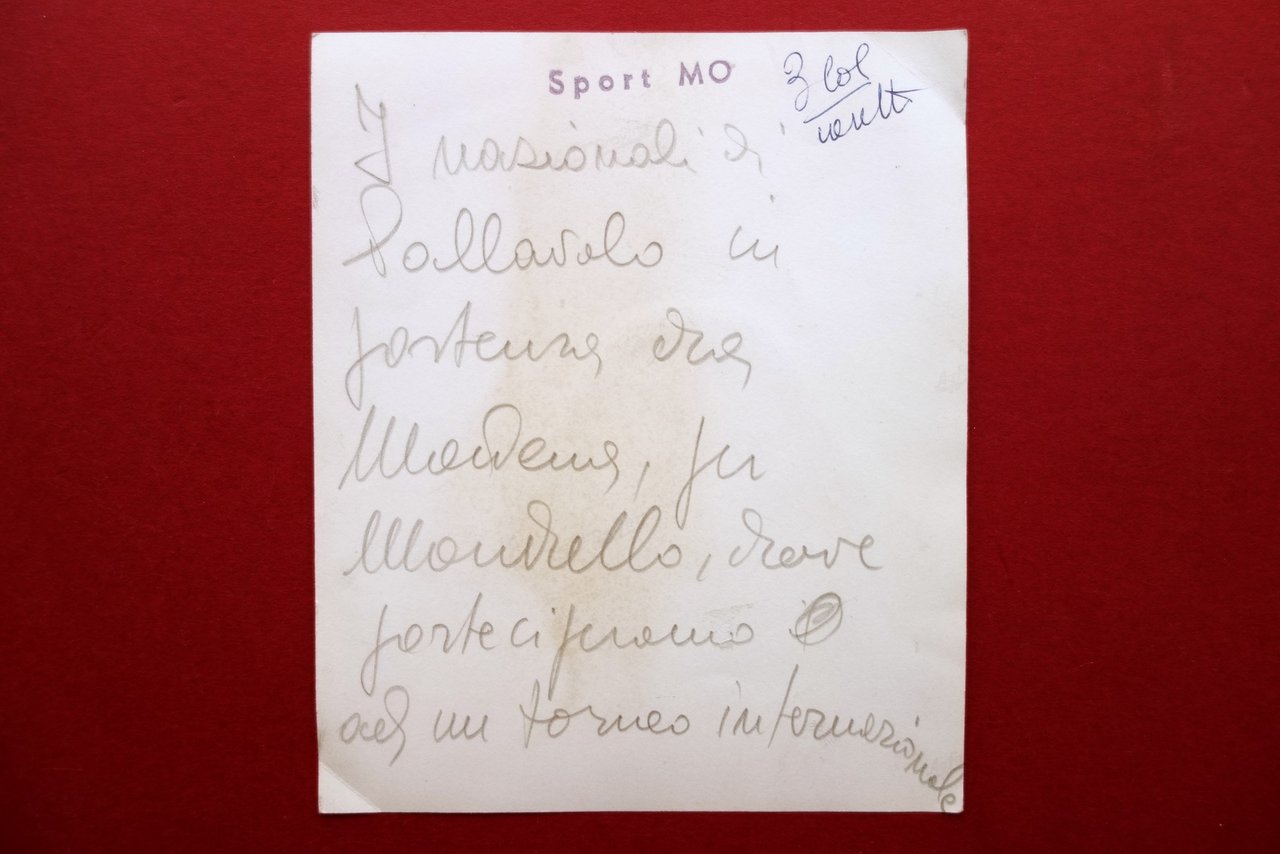 Sport MO
3 col
I nazionali di
Pallavolo in
partenza da
Modena, per
Mondello, dove
partecipano
ad un torneo internazionale